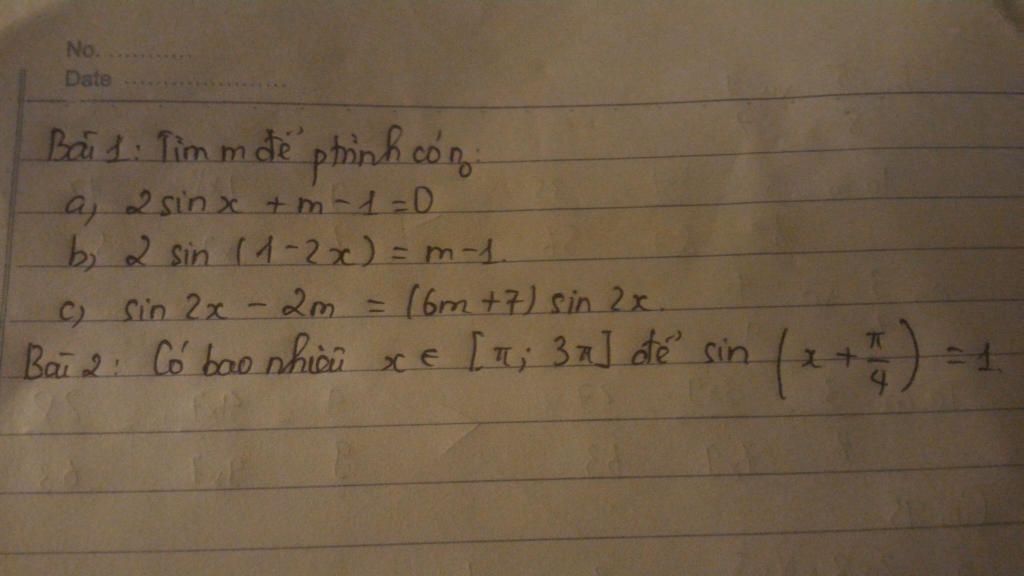 No. ............
Date ......................
Bài 1: Tìm m để ptrình có n₀:
a, 2 sin x + m - 1 = 0
b, 2 sin (1 - 2x) = m - 1.
c, sin 2x - 2m = (6m + 7) sin 2x.
Bài 2: Có bao nhiêu x ∈ [π; 3π] để sin (x + π/4) = 1